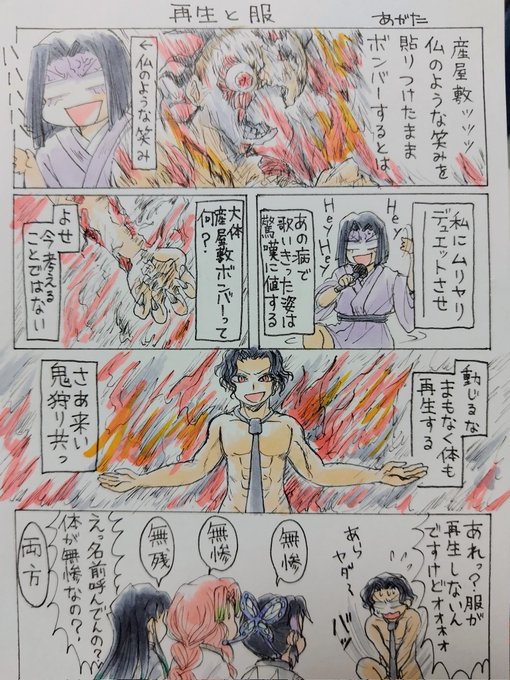 再生と服
あがた
産屋敷ッッッ
仏のような笑みを
貼りつけたまま
ボンバーするとは
←仏のような笑み
私にムリヤリ
デュエットさせ
Hey
Hey
Hey
Hey
あの病で
歌いきった姿は
驚嘆に値する
大体
産屋敷ボンバーって
何?
よせ
今考える
ことではない
動じるな
まもなく体も
再生する
さあ来い
鬼狩り共っ
あれっ?服が
再生しないん
ですけどオオオオ
あら
ヤダ
バッ
無惨
無惨
無残
えっ名前呼んでんの?
体が無惨なの?
両方